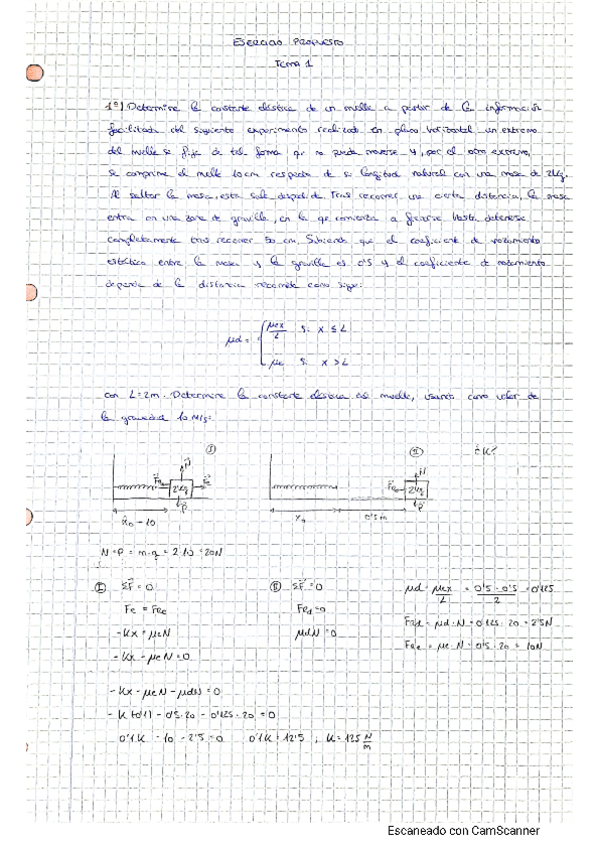 EJERCICIO PROPUESTO
TEMA 1
1º) Determine la constante elástica de un muelle a partir de la información
facilitada del siguiente experimento realizado en plano horizontal: un extremo
del muelle se fija de tal forma que no puede moverse y, por el otro extremo,
se comprime el muelle 10 cm respecto de su longitud natural con una masa de 2 kg.
Al soltar la masa, esta sale despedida. Tras recorrer una cierta distancia, la masa
entra en una zona de gravilla, en la que comienza a frenarse hasta detenerse
completamente tras recorrer 50 cm. Sabiendo que el coeficiente de rozamiento
estático entre la masa y la gravilla es 0'5 y el coeficiente de rozamiento
depende de la distancia recorrida como sigue:
μd = { μe x / L si x ≤ L
μe si x > L
con L = 2m. Determine la constante elástica del muelle, usando como valor de
la gravedad 10 N/s²
I
II
¿K?
N
Fe
2 kg
P
x₀ - 10
N
2 kg
P
x₀
0'5 m
N = P = m · g = 2 · 10 = 20N
I ΣF = 0
II ΣF = 0
μd = μe x / L = 0'5 · 0'5 / 2 = 0'125
Fe = FRe
FRd = 0
FRd = μd · N = 0'125 · 20 = 2'5N
-Kx = μeN
μdN = 0
FRe = μe · N = 0'5 · 20 = 10N
-Kx - μeN = 0
-Kx - μeN - μdN = 0
-K(-0'1) - 0'5 · 20 - 0'125 · 20 = 0
0'1K - 10 - 2'5 = 0 0'1K = 12'5 ; K = 125 N/m
Escaneado con CamScanner